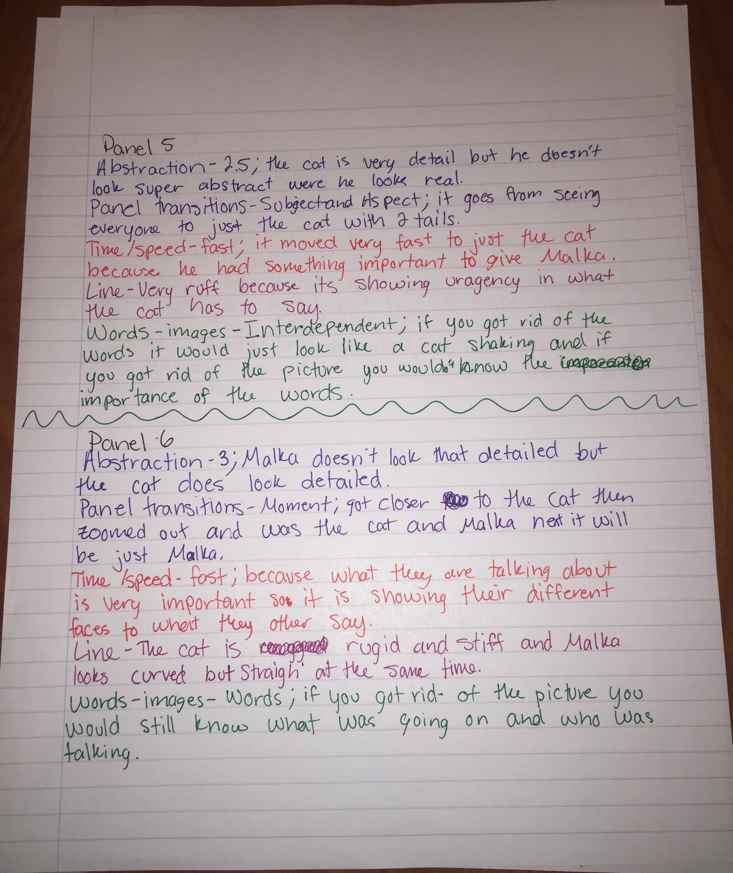 Panel 5
Abstraction - 2.5; the cat is very detail but he doesn't
look super abstract were he looks real.
Panel transitions - Subject and Aspect; it goes from seeing
everyone to just the cat with 2 tails.
Time/speed - fast; it moved very fast to just the cat
because he had something important to give Malka.
Line - Very ruff because its showing uragency in what
the cat has to say.
Words - images - Interdependent; if you got rid of the
words it would just look like a cat shaking and if
you got rid of the picture you wouldn't know the
importance of the words.
Panel 6
Abstraction - 3; Malka doesn't look that detailed but
the cat does look detailed.
Panel transitions - Moment; got closer to the cat then
zoomed out and was the cat and Malka next it will
be just Malka.
Time/speed - fast; because what they are talking about
is very important so it is showing their different
faces to what they other say.
Line - The cat is rugid and stiff and Malka
looks curved but straigh at the same time.
Words - images - Words; if you got rid of the picture you
would still know what was going on and who was
talking.